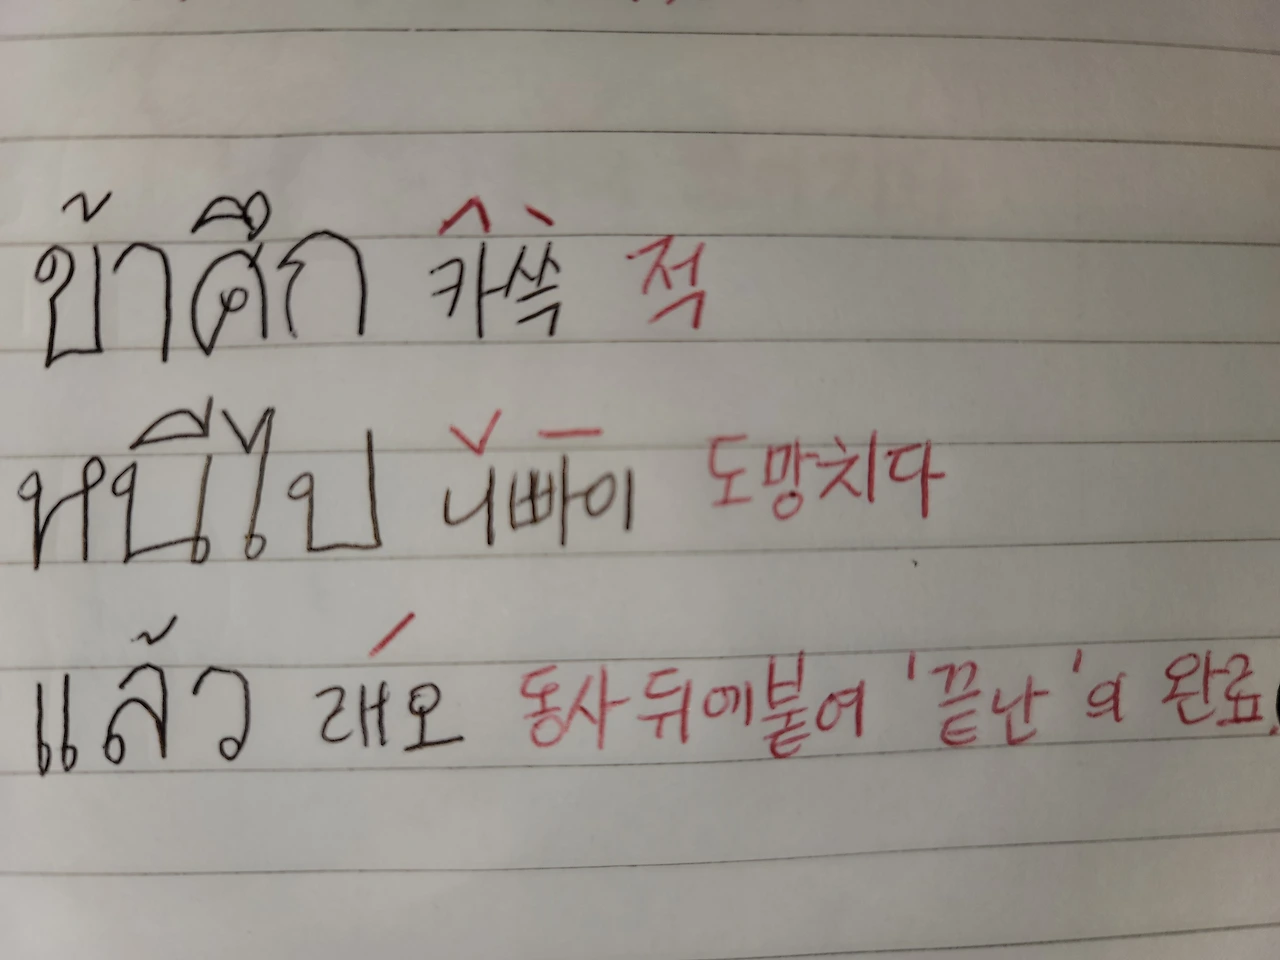 ข้าศึก 카쓱 적
หนีไป 니빠이 도망치다
แล้ว 래오 동사 뒤에 붙어 '끝난'의 완료